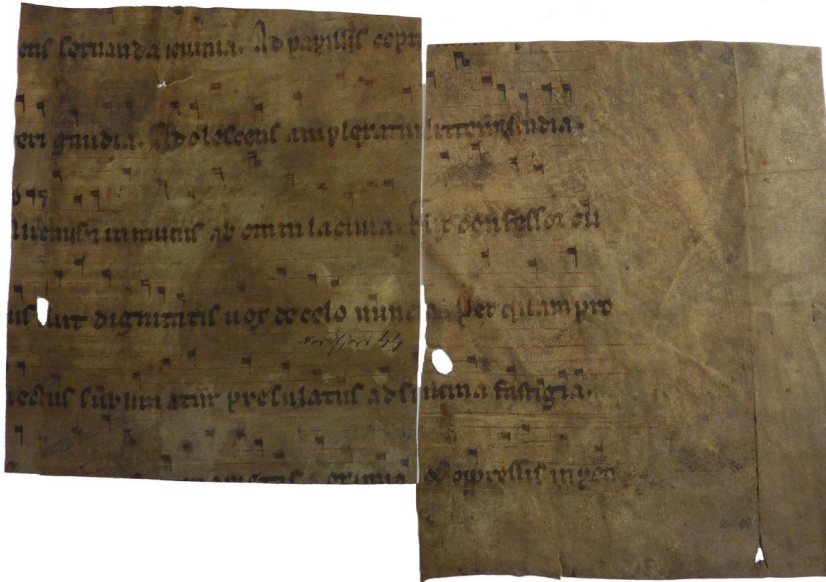 cens seruanda ieiunia. Ad papillis cepit
reri gaudia. Adolescens amplexatur litterarum studia.
Alienus et inmunis ab omni laciuia. Felix confessor cui
us fuit dignitatis uox de celo nunc a. Per quam pro
uectus sublimatur presulatus ad summa fastigia.
pietas eximia & oppressis inpen